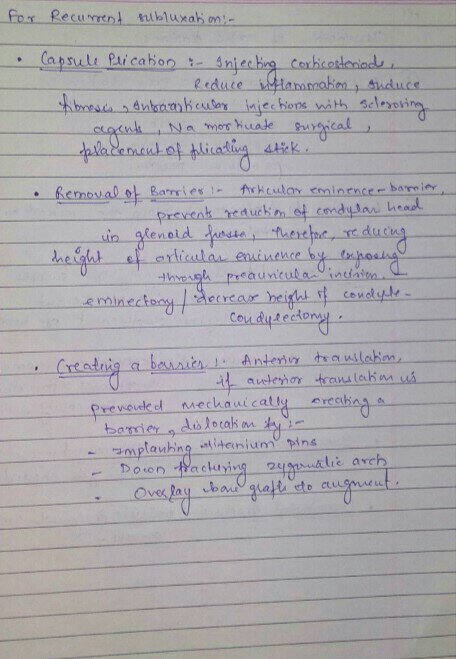 For Recurrent subluxation:-
• Capsule Plication :- Injecting corticosteriods,
Reduce inflammation, induce
fibrosis, Intraarticular injections with sclerosing
agents, Na morhuate surgical,
placement of plicating stick.
• Removal of Barrier :- Articular eminence - barrier,
prevents reduction of condylar head
in glenoid fossa, therefore, reducing
height of articular eminence by exposing
through preauricular incision.
eminectomy / decrease height of condyle -
condylectomy.
• Creating a barrier :- Anterior translation,
if anterior translation is
prevented mechanically creating a
barrier, dislocation by :-
- Implanting titanium pins
- Down fracturing zygomatic arch
- Overlay bone grafts to augment.